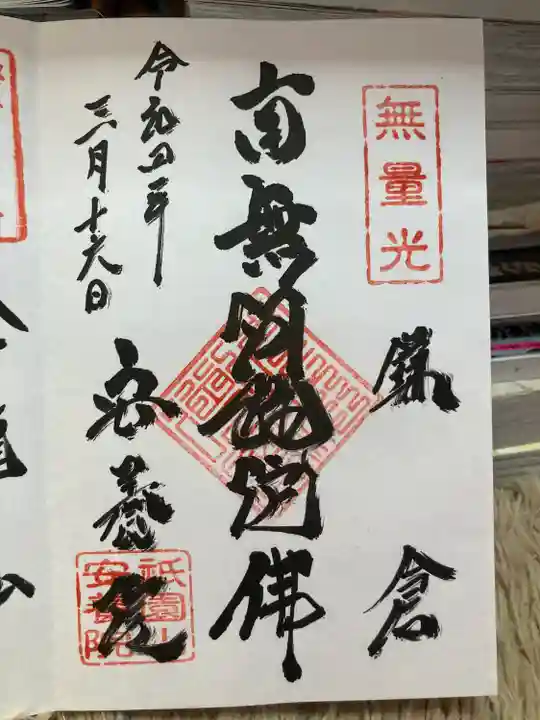 無量光
鎌倉
南無阿彌陀佛
令和四年
三月十六日
安養院
祇園山
安養院